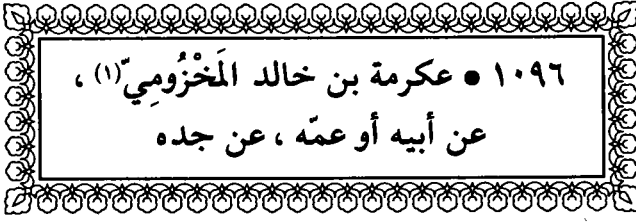 ١٠٩٦ • عكرمة بن خالد المَخْزُوميّ(١) ،
عن أبيه أو عمّه ، عن جده